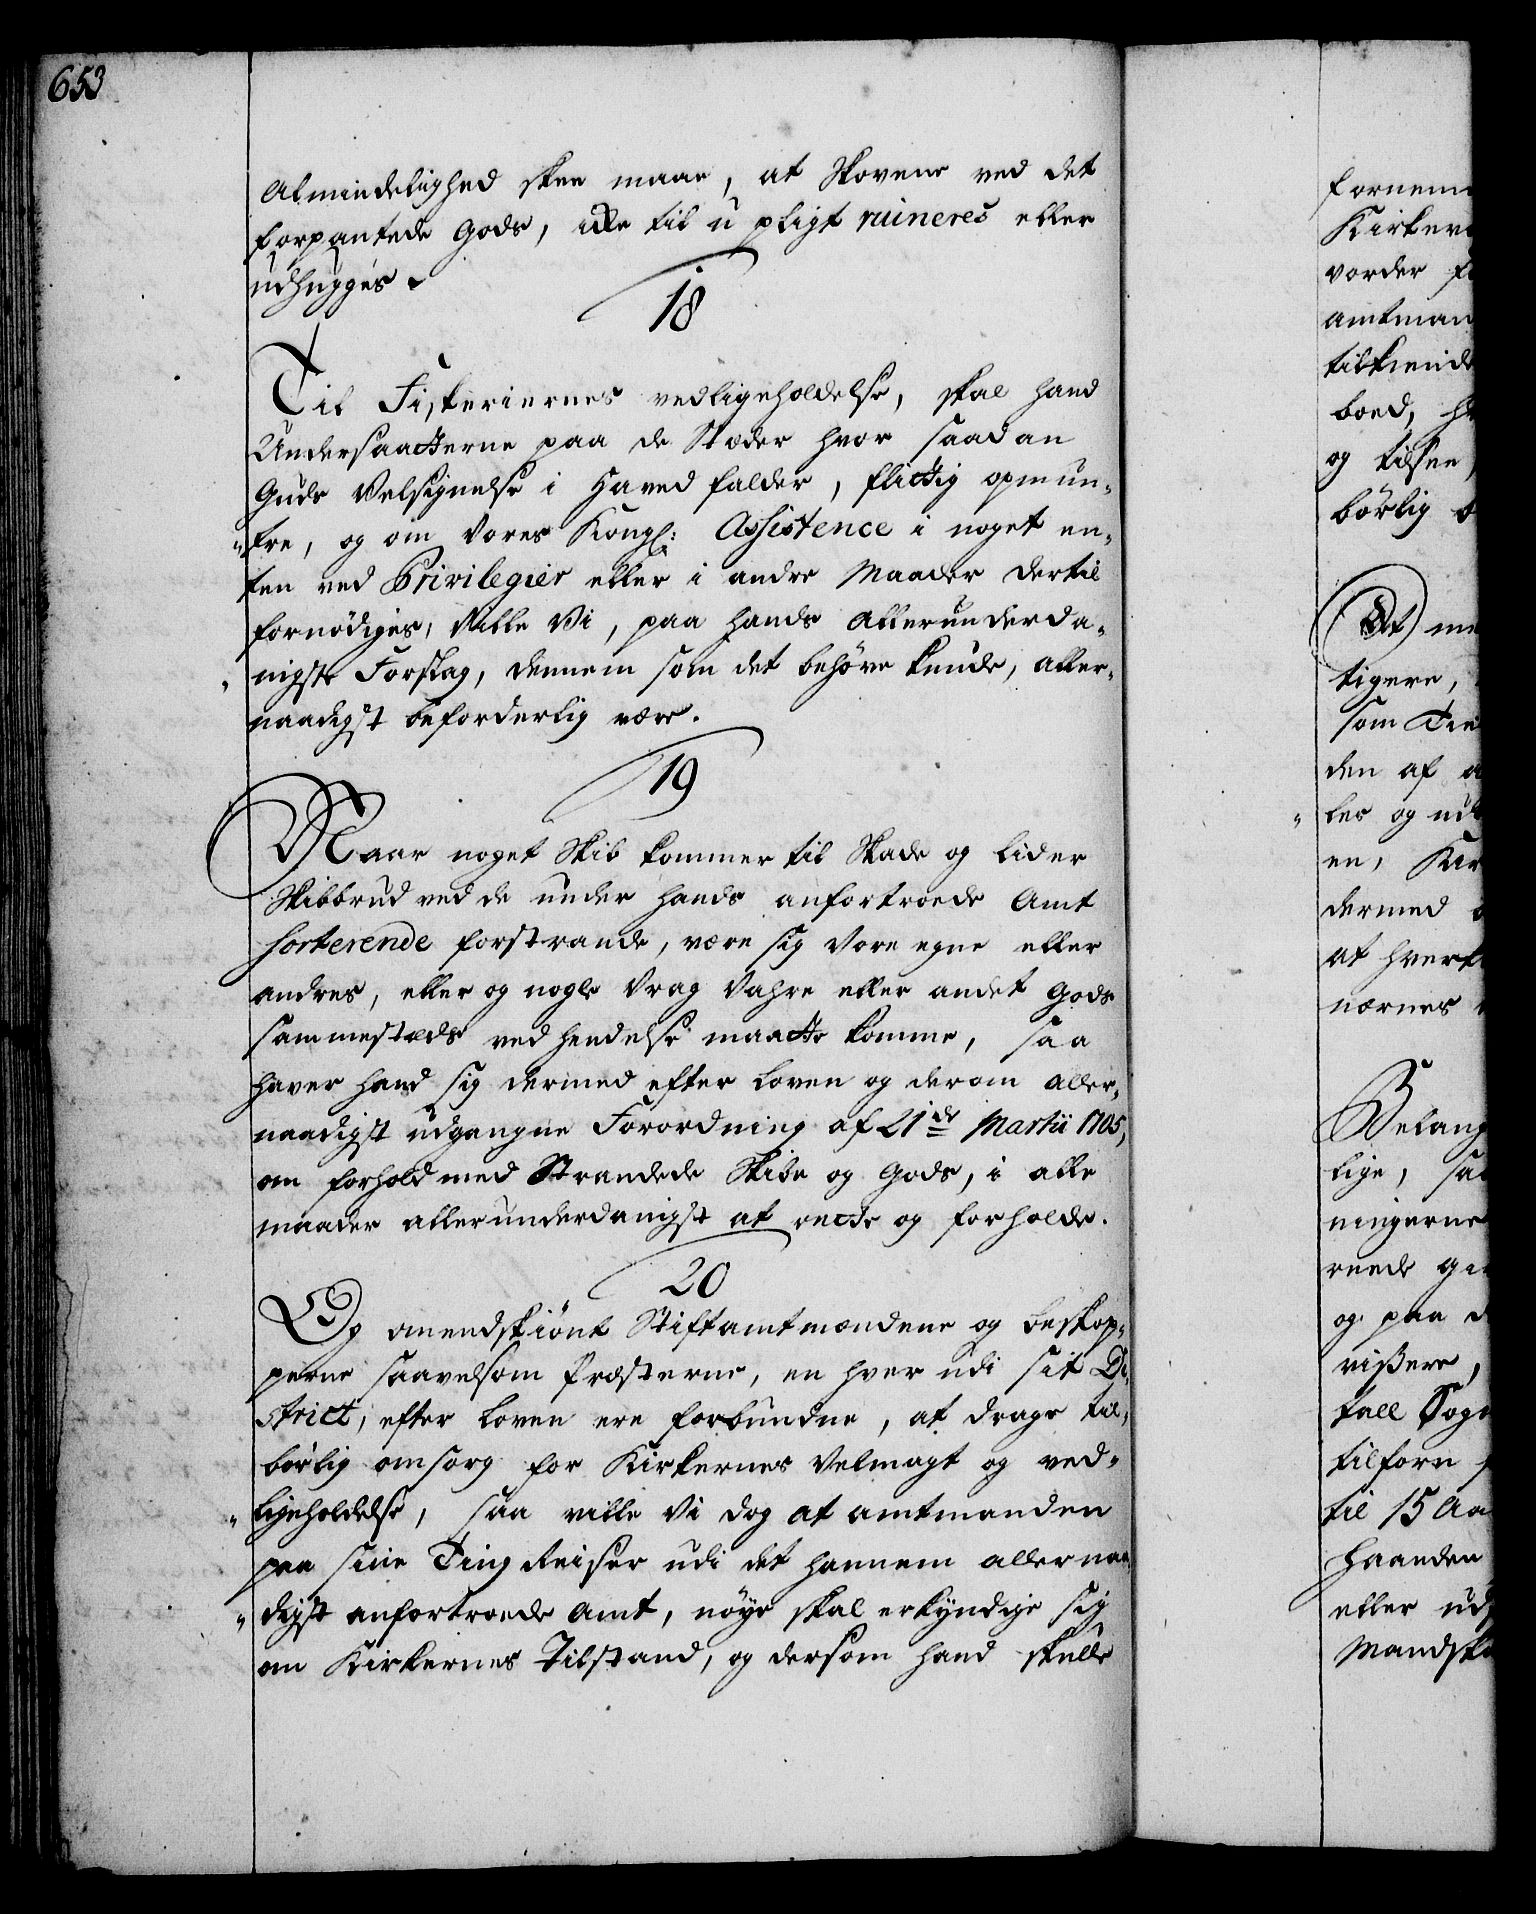 653
Almindelighed skee maae, at Skovene ved det
forpantede Gods, icke til u pligt ruineres eller
udhugges.
18
Til Fiskeriernes vedligeholdelse, skal hand
Undersaatterne paa de Stæder hvor saadan
Guds Velsignelse i Haved falder, flittig opmun-
"tre, og om Vores Kongl: Assistence i noget en-
ten ved Privilegier eller i andre Maader dertil
fornödiges, Ville Vi, paa hands allerunderda-
"nigste Forslag, dennem som det behöve kunde, aller-
naadigst beforderlig være.
19
Naar noget Skib kommer til Skade og lider
Skibbrud ved de under hands anfortroede Amt
sorterende forstrande, være sig Vore egne eller
andres, eller og nogle Vrag Vahre eller andet Gods
sammestæds ved hendelse maatte komme, saa
haver hand sig dermed efter loven og derom aller-
naadigst udgangne Forordning af 21de Martii 1705,
om forhold med Strandede Skibe og Gods, i alle
maader allerunderdanigst at rette og forholde.
20
Og omendskiönt Stiftamtmændene og beskop-
perne saavelsom Præsterne, en hver udi sit Di-
strict, efter loven ere forbundne, at drage til-
börlig omsorg for Kirkernes Velmagt og ved-
"ligeholdelse, saa ville Vi dog at amtmanden
paa sine Ting Reiser udi det hannem allernaa-
"digst anfortroede Amt, nöye skal erkyndige sig
om Kirkernes Tilstand, og dersom hand skulle
fornem
Kirker
vorder
amtman
tilkiende
boed,
og tilsee,
börlig
At
tigere,
som
den af
"les og
en,
dermed
at
nernes
Belang
lige,
ningerne
reede
og paa
vißere,
tall Sogn
tilforn
til 15 Aa
haanden
eller
Mandska